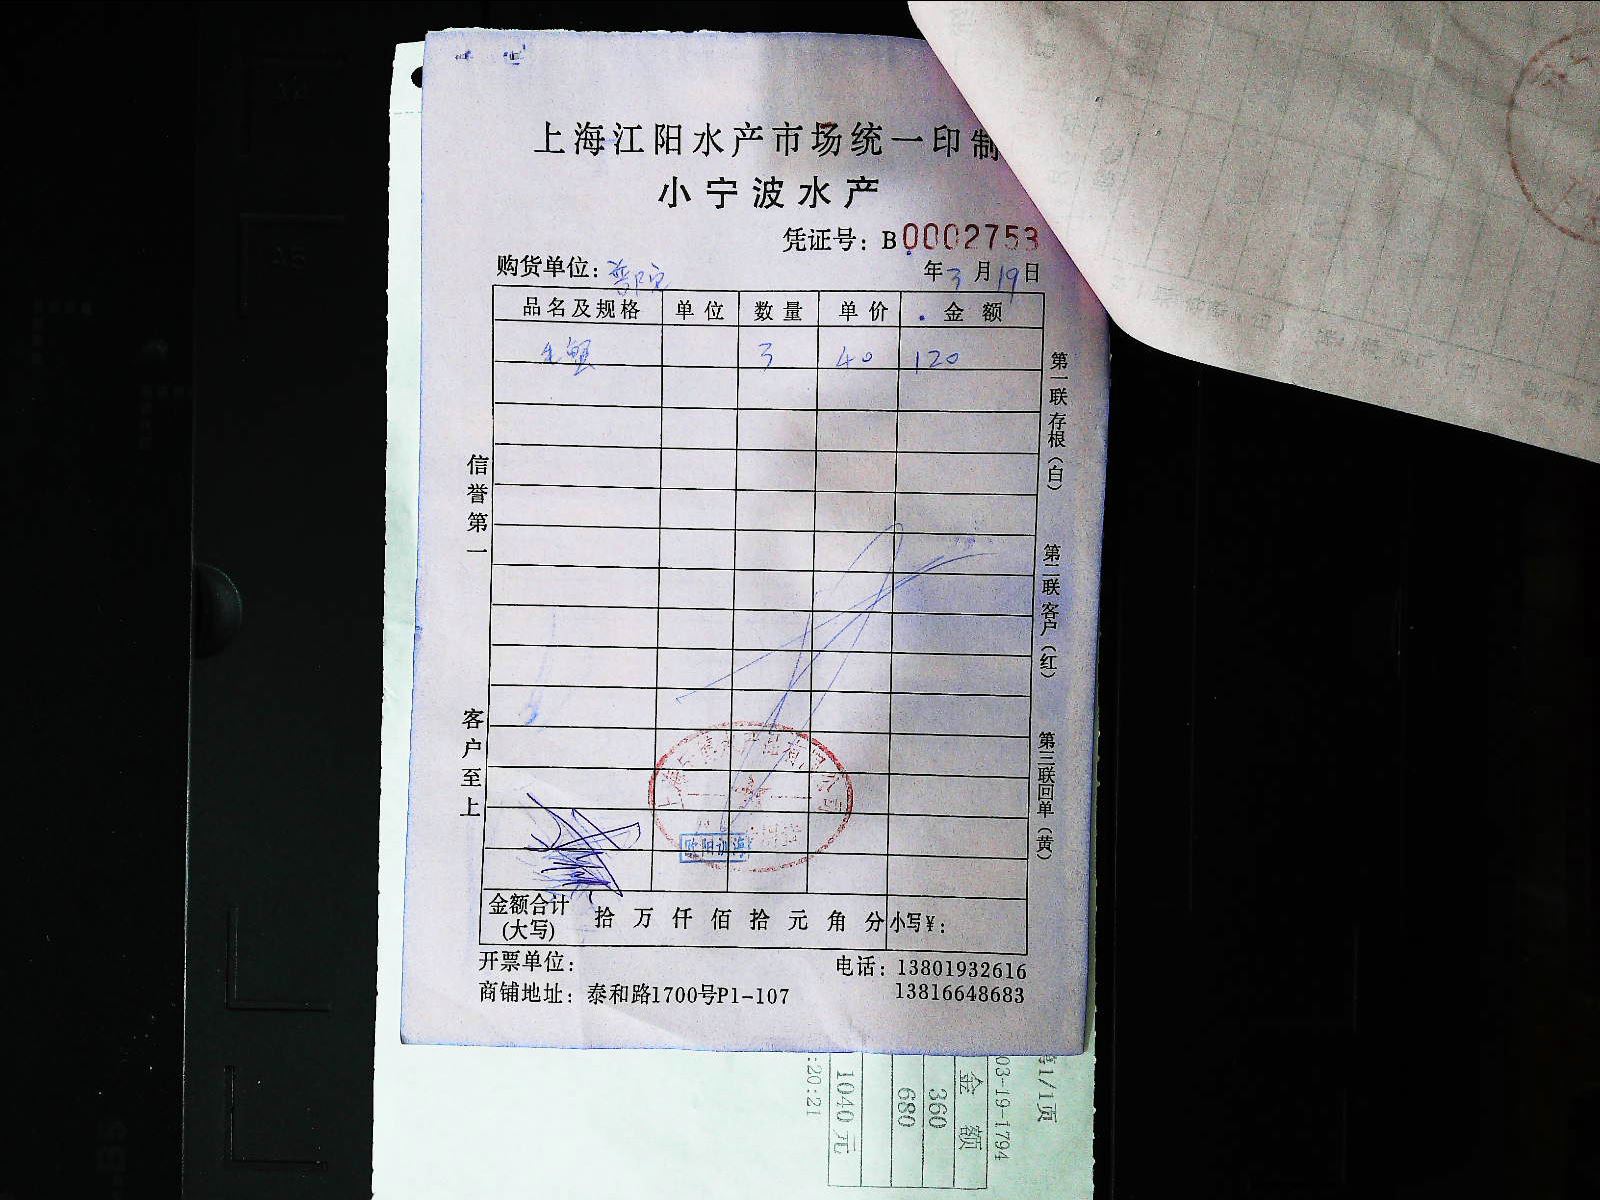 上海江阳水产市场统一印制
小宁波水产
凭证号：B0002753
购货单位：普陀
年3月19日
品名及规格 单位 数量 单价 金额
毛蟹 3 40 120
信誉第一
客户至上
第一联存根（白）
第二联客户（红）
第三联回单（黄）
欧阳训海
金额合计（大写） 拾 万 仟 佰 拾 元 角 分 小写¥：
开票单位：
电话：13801932616
13816648683
商铺地址：泰和路1700号P1-107
1/1页
03-19-1794
金额
360
680
1040元
:20:21